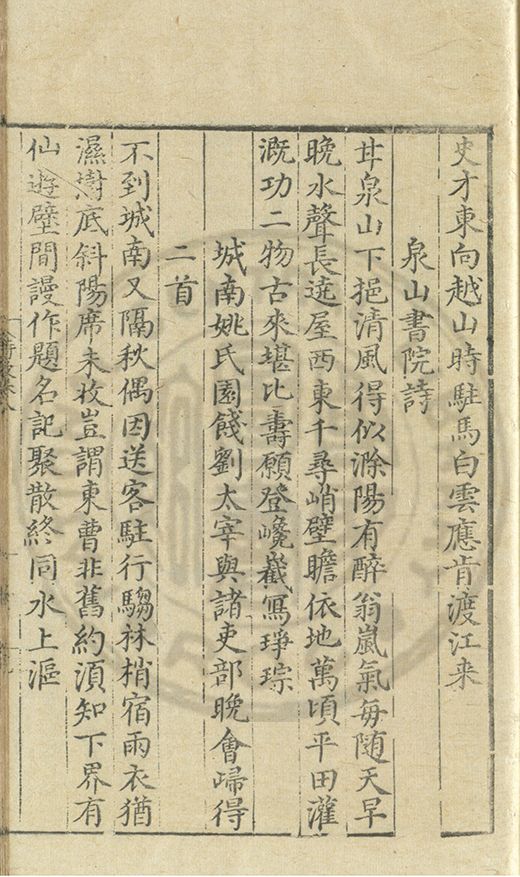 史才東向越山時駐馬白雲應肯渡江来
泉山書院詩
甘泉山下挹清風得似滁陽有醉翁嵐氣每随天早
晚水聲長遶屋西東千尋峭壁瞻依地萬頃平田灌
溉功二物古來堪比壽願登巉巀寫琤琮
城南姚氏園餞劉太宰與諸吏部晚會歸得
二首
不到城南又隔秋偶因送客駐行騶林梢宿雨衣猶
濕樹底斜陽席未收豈謂東曹非舊約須知下界有
仙遊壁間謾作題名記聚散終同水上漚